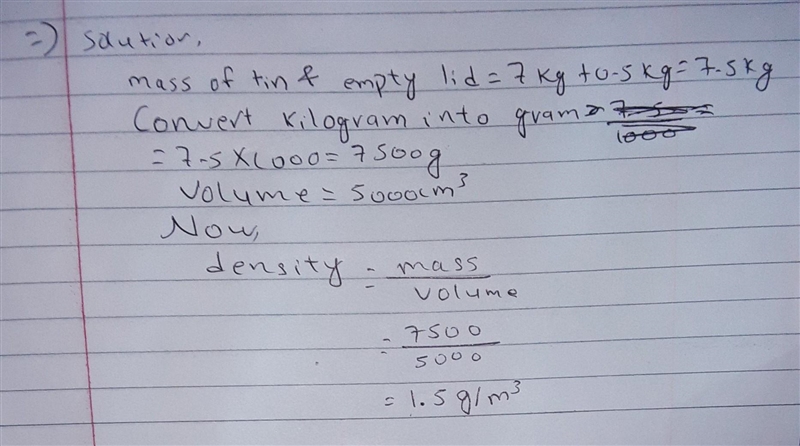 =) Solution,
mass of tin & empty lid = 7 kg + 0.5 kg = 7.5 kg
Convert kilogram into gram =
= 7.5 X 1000 = 7500g
Volume = 5000cm³
Now,
density = mass
volume
= 7500
5000
= 1.5 g/m³